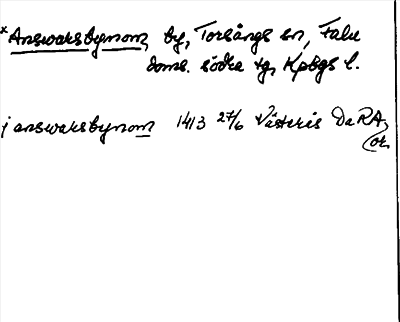 *Answarsbynom, by, Torsångs sn, Falu
doms. södra tg, Kpbgs l.
j answarsbynom 1413 27/6 Västerås DaRA,
or.